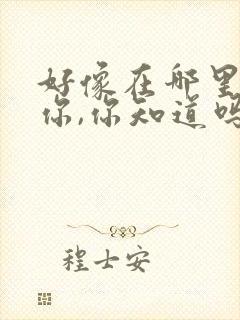 好像在那里
你,你知道吗
程士安